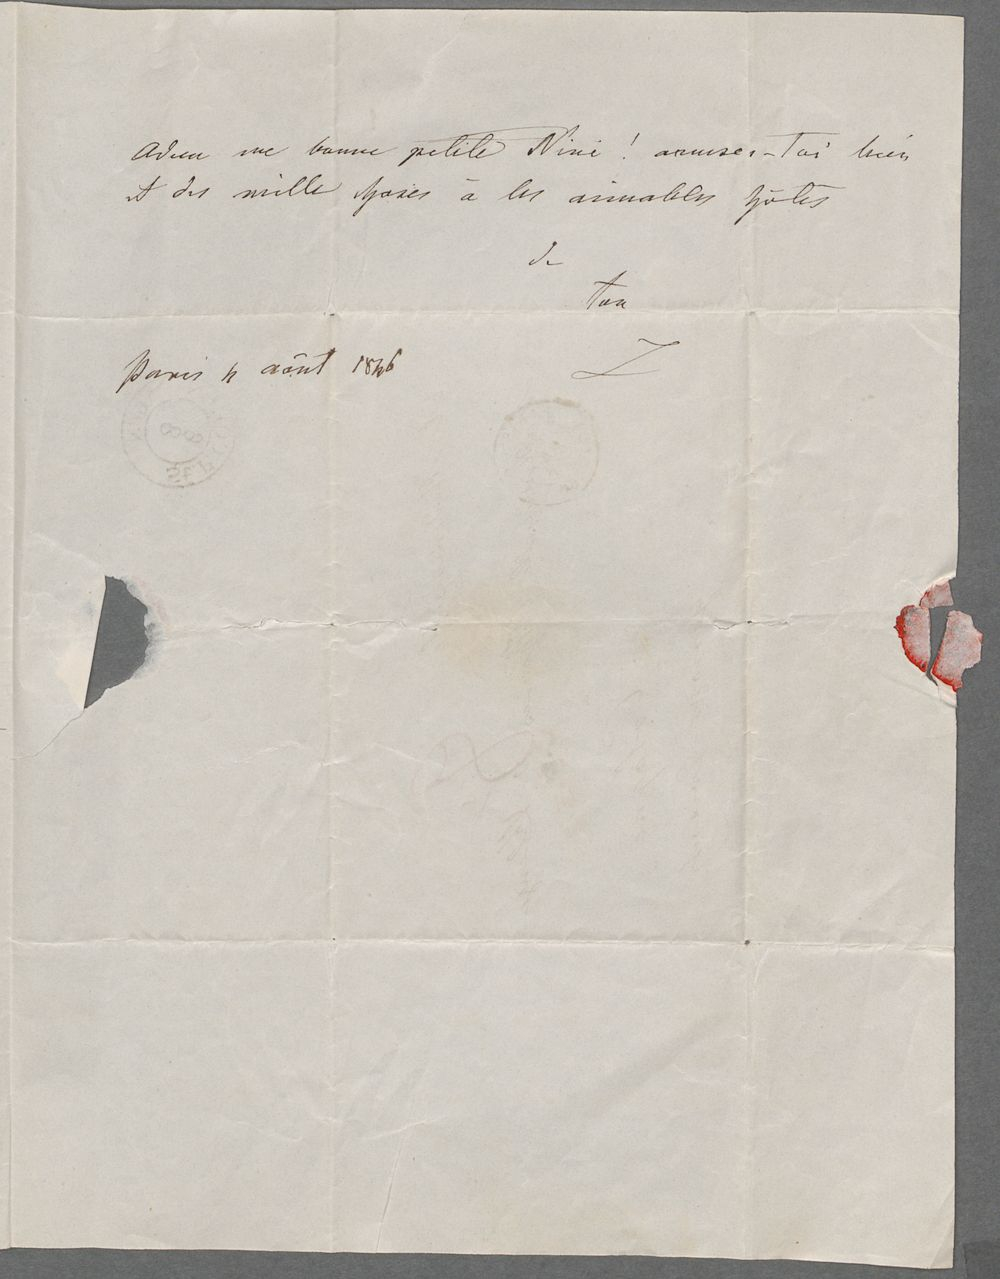 Adieu ma bonne petite Nini ! amuses-toi bien
et dis mille choses à tes aimables hôtes
de
ton
Z
Paris 4 août 1846